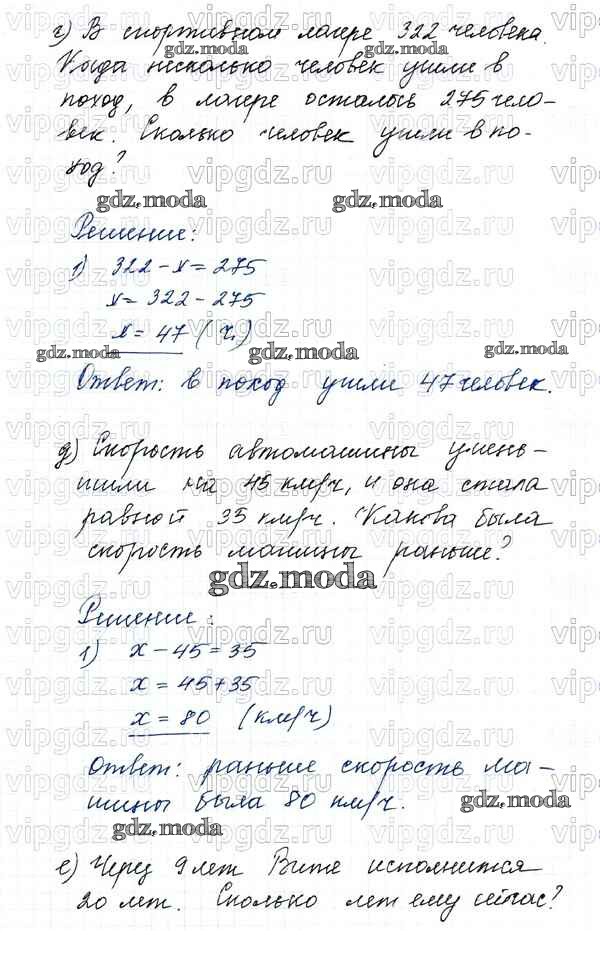 г) В спортивном лагере 322 человека.
Когда несколько человек ушли в
поход, в лагере осталось 275 чело-
век. Сколько человек ушли в по-
ход?
Решение:
1) 322 - x = 275
x = 322 - 275
x = 47 (ч.)
Ответ: в поход ушли 47 человек.
д) Скорость автомашины умень-
шили на 45 км/ч, и она стала
равной 35 км/ч. Какова была
скорость машины раньше?
gdz.moda
Решение:
1) x - 45 = 35
x = 45 + 35
x = 80 (км/ч)
Ответ: раньше скорость ма-
шины была 80 км/ч.
е) Через 9 лет Вите исполнится
20 лет. Сколько лет ему сейчас?